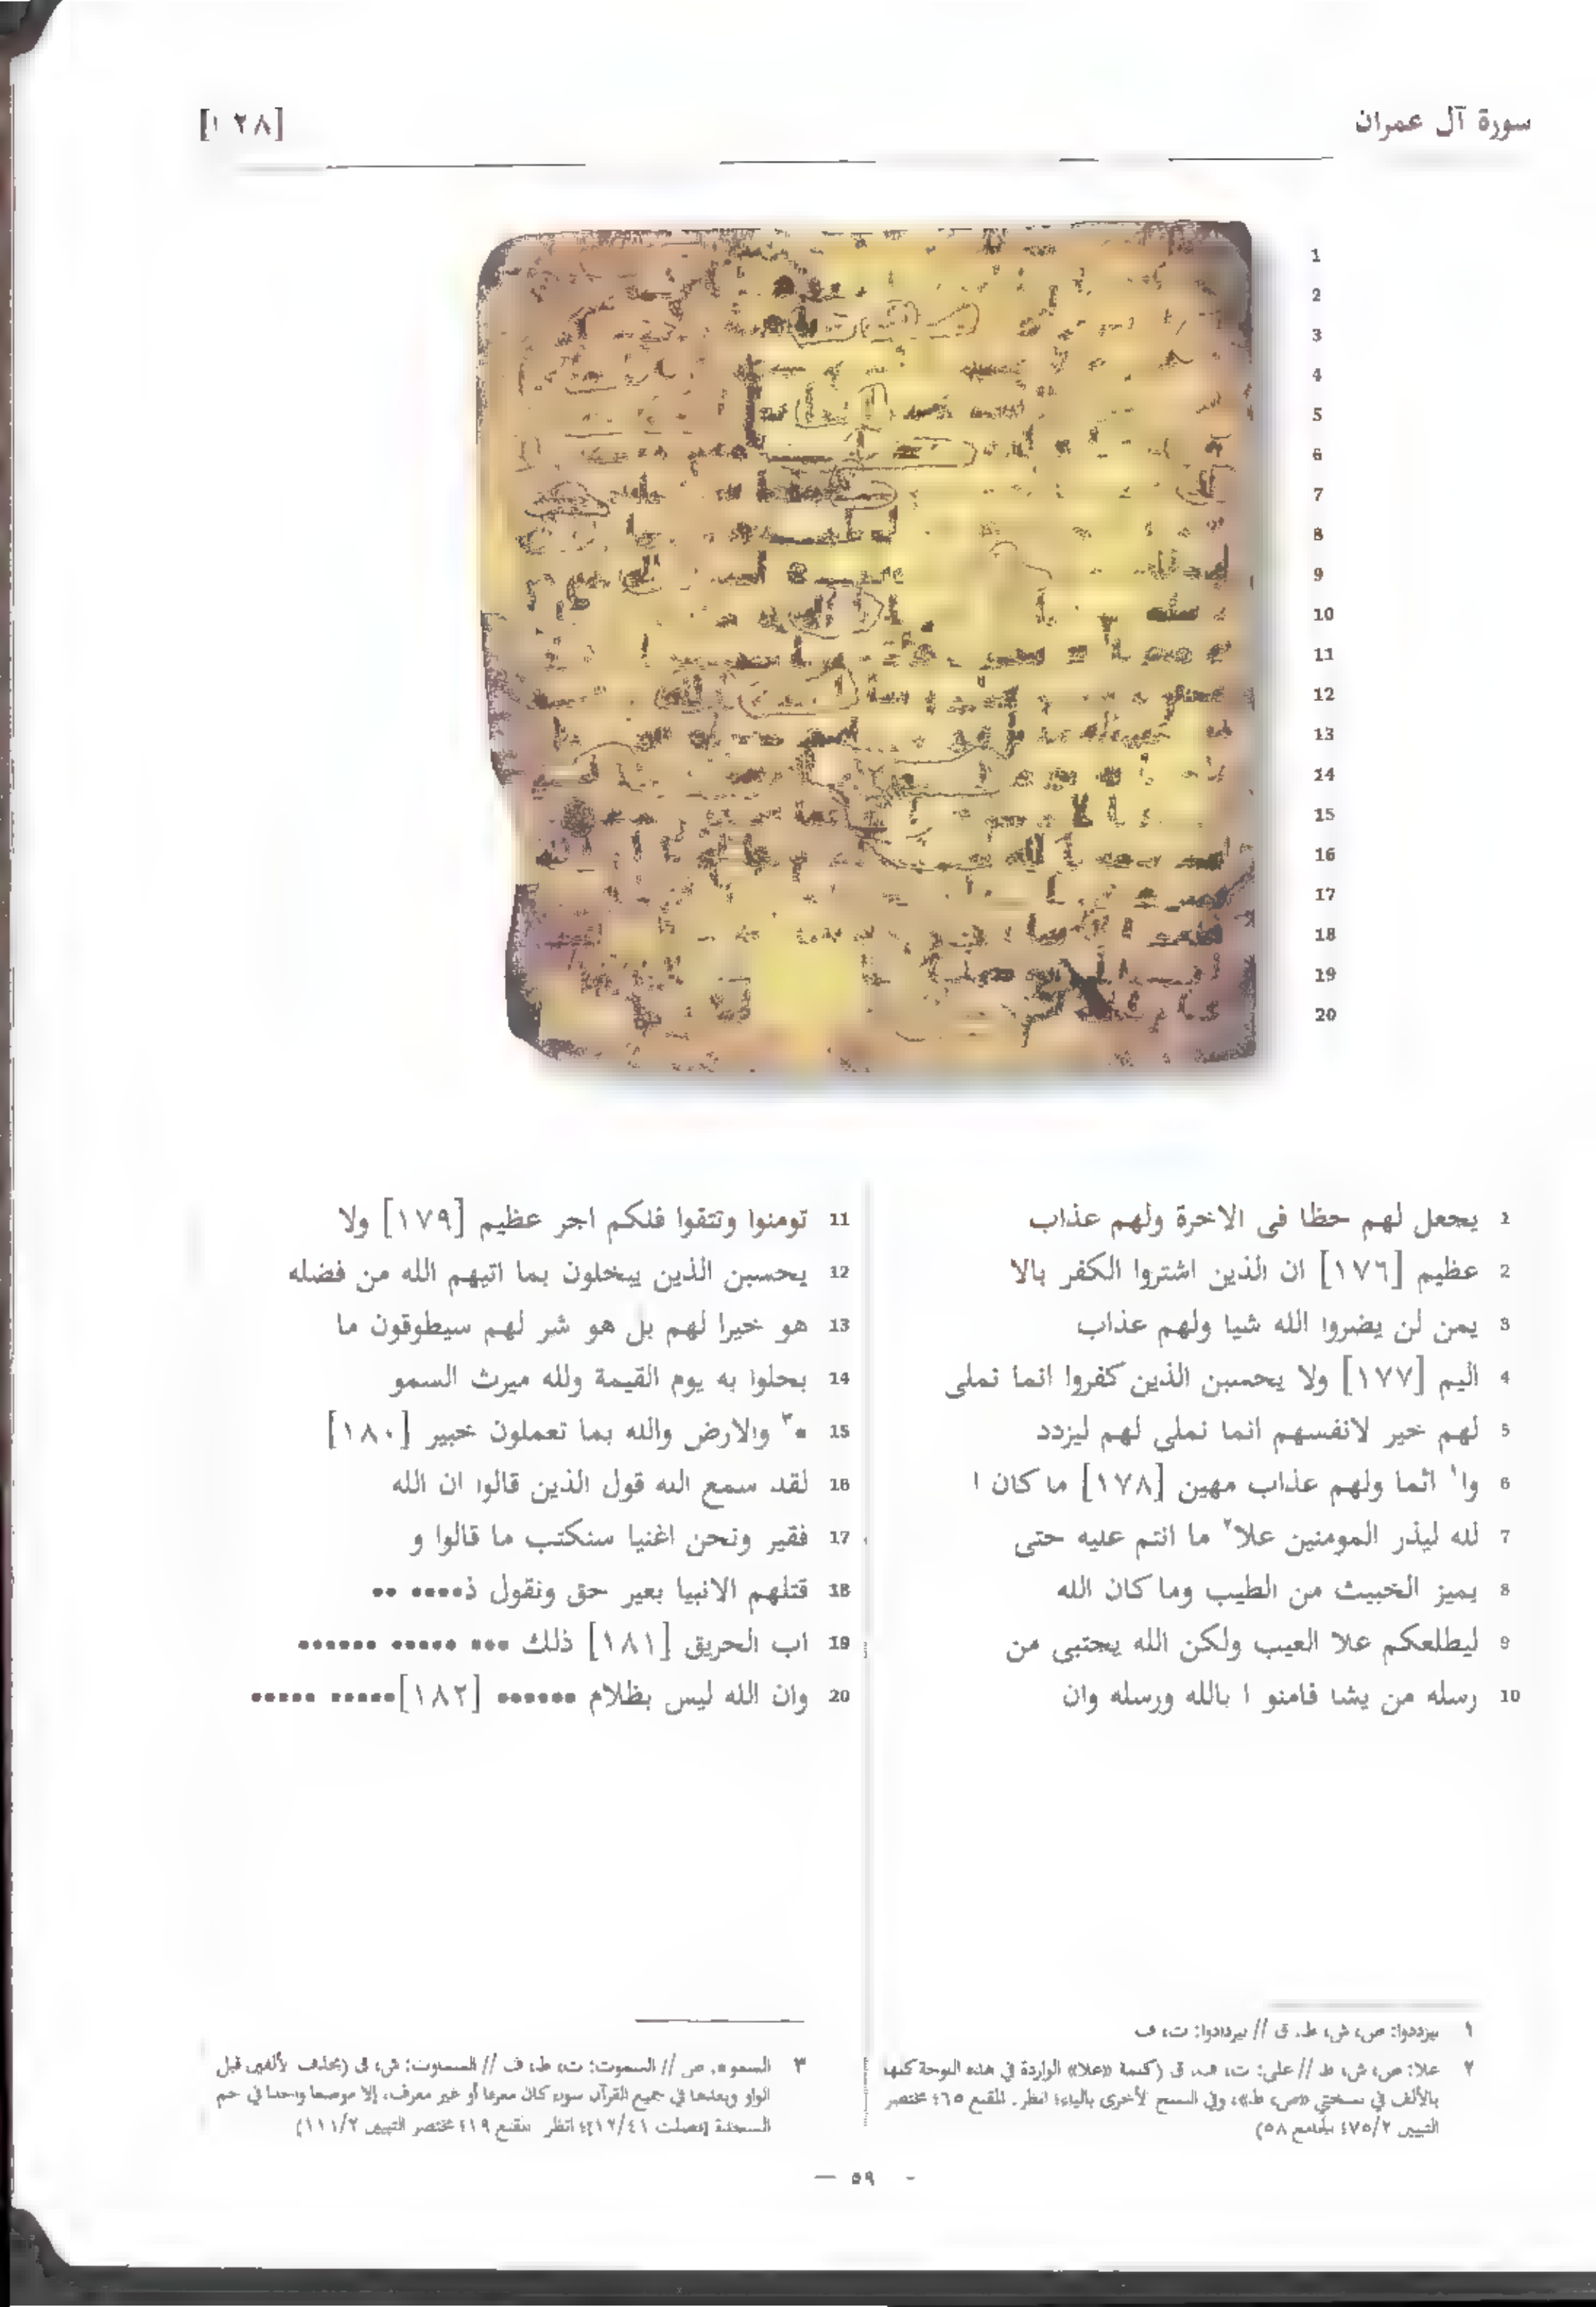 سورة آل عمران
[١٢٨]
1
2
3
4
5
6
7
8
9
10
11
12
13
14
15
16
17
18
19
20
1 يجعل لهم حظا فى الاخرة ولهم عذاب
2 عظيم [١٧٦] ان الذين اشتروا الكفر بالا
3 يمن لن يضروا الله شيا ولهم عذاب
4 اليم [١٧٧] ولا يحسبن الذين كفروا انما نملى
5 لهم خير لانفسهم انما نملى لهم ليزدد
6 وا١ اثما ولهم عذاب مهين [١٧٨] ما كان ا
7 لله ليذر المومنين علا٢ ما انتم عليه حتى
8 يميز الخبيث من الطيب وما كان الله
9 ليطلعكم علا الغيب ولكن الله يجتبى من
10 رسله من يشا فامنو ا بالله ورسله وان
11 تومنوا وتتقوا فلكم اجر عظيم [١٧٩] ولا
12 يحسبن الذين يبخلون بما اتيهم الله من فضله
13 هو خيرا لهم بل هو شر لهم سيطوقون ما
14 بخلوا به يوم القيمة ولله ميرث السمو
15 •٣ والارض والله بما تعملون خبير [١٨٠]
16 لقد سمع الله قول الذين قالوا ان الله
17 فقير ونحن اغنيا سنكتب ما قالوا و
18 قتلهم الانبيا بغير حق ونقول ذ•••• ••
19 اب الحريق [١٨١] ذلك ••• ••••• ••••••
20 وان الله ليس بظلام •••••• [١٨٢]••••• •••••
١ ليزددوا: ص، ش، ط، ق // ليزدادوا: ت، ف
٢ علا: ص، ش، ط // على: ت، ف، ق (كلمة «علا» الواردة في هذه اللوحة كلها
بالألف في نسختي «ص، ط»، وفي النسخ الأخرى بالياء؛ انظر. المقنع ٦٥؛ مختصر
التبيين ٧٥/٢؛ الجامع ٥٨)
٣ السمو•، ص // السموت: ت، ط، ف // السماوت: ش، ق (بحذف الألفين قبل
الواو وبعدها في جميع القرآن سواء كان معرفا أو غير معرف، إلا موضعا واحدا في حم
السجدة [فصلت ١٢/٤١]؛ انظر المقنع ١٩؛ مختصر التبيين ١١١/٢)
— ٥٩ -